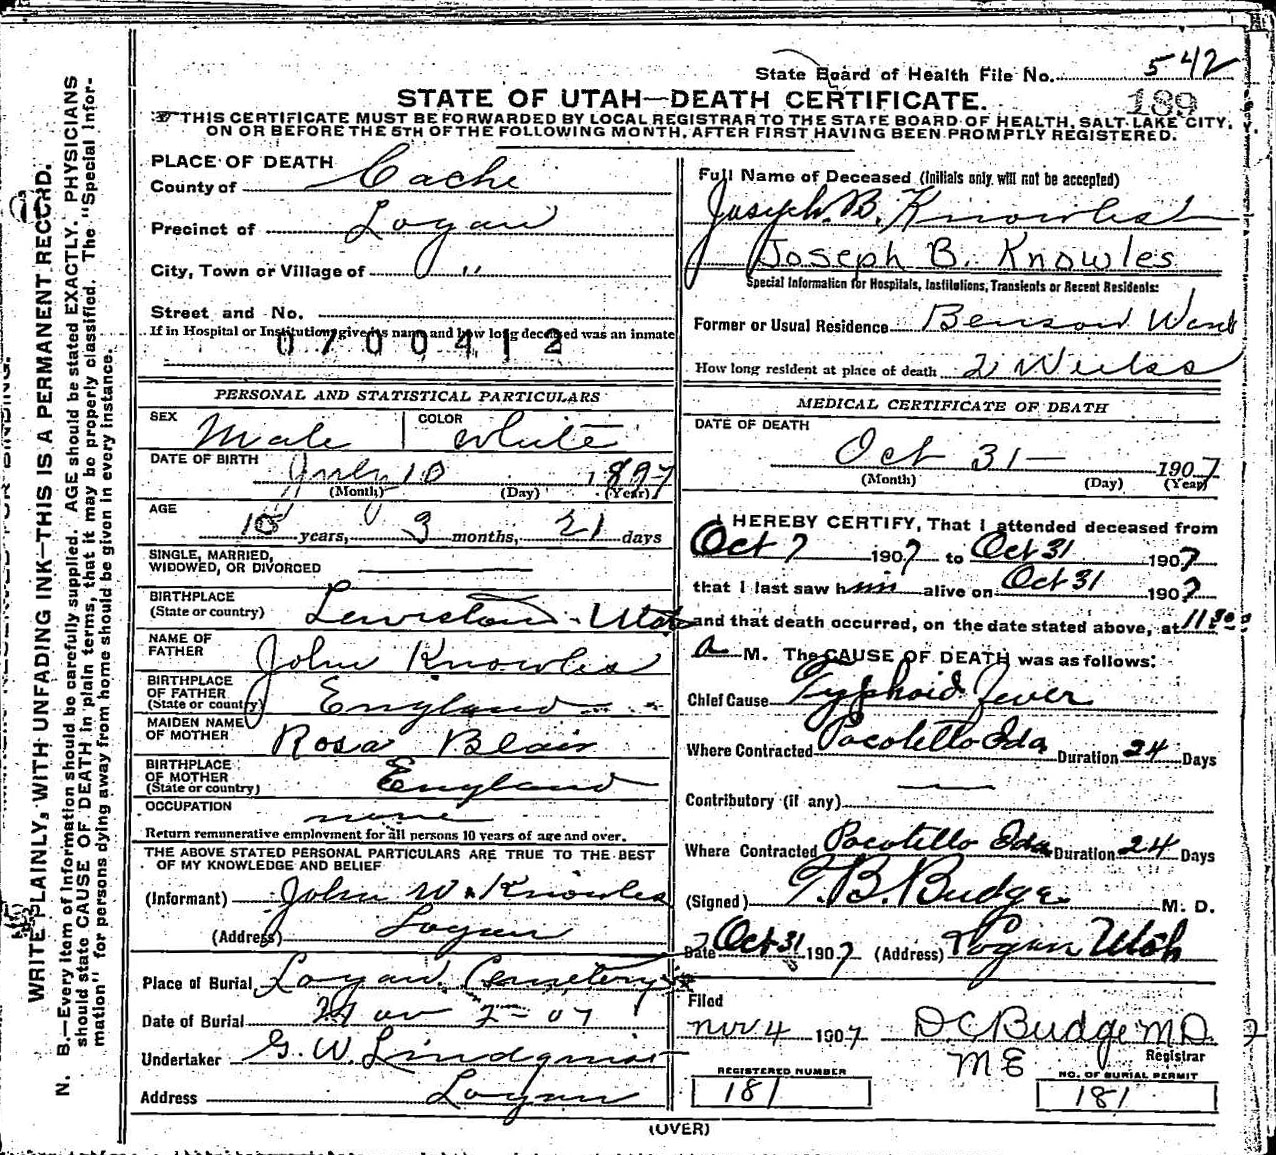 State Board of Health File No. 542
189
STATE OF UTAH—DEATH CERTIFICATE.
THIS CERTIFICATE MUST BE FORWARDED BY LOCAL REGISTRAR TO THE STATE BOARD OF HEALTH, SALT LAKE CITY,
ON OR BEFORE THE 5TH OF THE FOLLOWING MONTH, AFTER FIRST HAVING BEEN PROMPTLY REGISTERED.
PLACE OF DEATH
County of Cache
Precinct of Logan
City, Town or Village of "
Street and No.
If in Hospital or Institution, give its name and how long deceased was an inmate
0700412
PERSONAL AND STATISTICAL PARTICULARS
SEX Male COLOR White
DATE OF BIRTH July 10 1897
(Month) (Day) (Year)
AGE
10 years, 3 months, 21 days
SINGLE, MARRIED,
WIDOWED, OR DIVORCED
BIRTHPLACE
(State or country) Lewiston - Utah
NAME OF
FATHER John Knowles
BIRTHPLACE
OF FATHER
(State or country) England
MAIDEN NAME
OF MOTHER Rosa Blair
BIRTHPLACE
OF MOTHER
(State or country) England
OCCUPATION
none
Return remunerative employment for all persons 10 years of age and over.
THE ABOVE STATED PERSONAL PARTICULARS ARE TRUE TO THE BEST
OF MY KNOWLEDGE AND BELIEF
(Informant) John W. Knowles
(Address) Logan
Place of Burial Logan Cemetery
Date of Burial Nov 2-07
Undertaker G. W. Lindquist
Address Logan
Full Name of Deceased (Initials only will not be accepted)
Joseph B. Knowles
Joseph B. Knowles
Special Information for Hospitals, Institutions, Transients or Recent Residents:
Former or Usual Residence Benson Ward
How long resident at place of death 2 Weeks
MEDICAL CERTIFICATE OF DEATH
DATE OF DEATH
Oct 31 — 1907
(Month) (Day) (Year)
I HEREBY CERTIFY, That I attended deceased from
Oct 7 1907 to Oct 31 1907
that I last saw him alive on Oct 31 1907
and that death occurred, on the date stated above, at 11:30
a M. The CAUSE OF DEATH was as follows:
Chief Cause Typhoid Fever
Where Contracted Pocotello Ida Duration 24 Days
Contributory (if any)
Where Contracted Pocotello Ida Duration 24 Days
(Signed) T. B. Budge M. D.
Date Oct 31 1907 (Address) Logan Utah
Filed
Nov 4 1907 D C Budge M D.
M E Registrar
REGISTERED NUMBER
181
NO. OF BURIAL PERMIT
181
(OVER)
WRITE PLAINLY, WITH UNFADING INK—THIS IS A PERMANENT RECORD.
N. B.—Every item of information should be carefully supplied. AGE should be stated EXACTLY. PHYSICIANS
should state CAUSE OF DEATH in plain terms, that it may be properly classified. The "Special Infor-
mation" for persons dying away from home should be given in every instance.